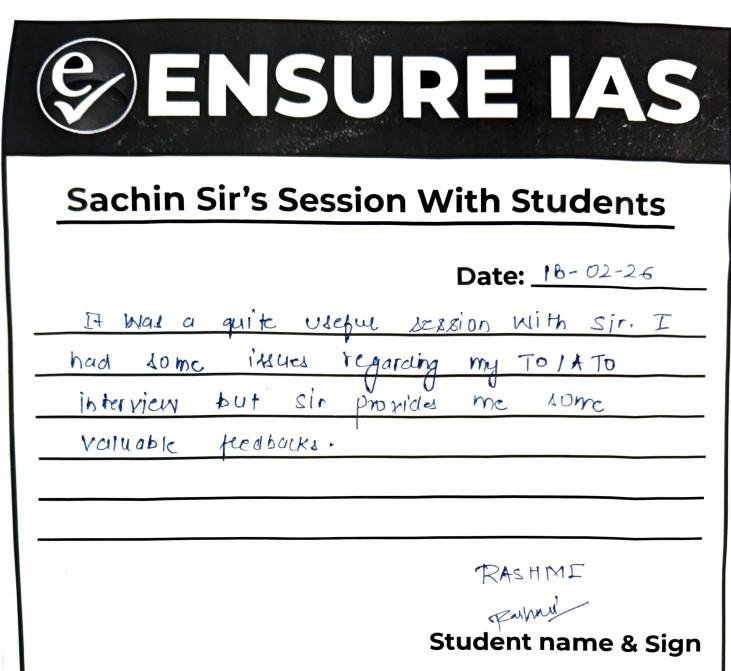 ENSURE IAS
Sachin Sir's Session With Students
Date: 18-02-26
It was a quite useful session with sir. I
had some issues regarding my TO/ATO
interview but sir provides me some
valuable feedbacks.
RASHMI
Rashmi
Student name & Sign